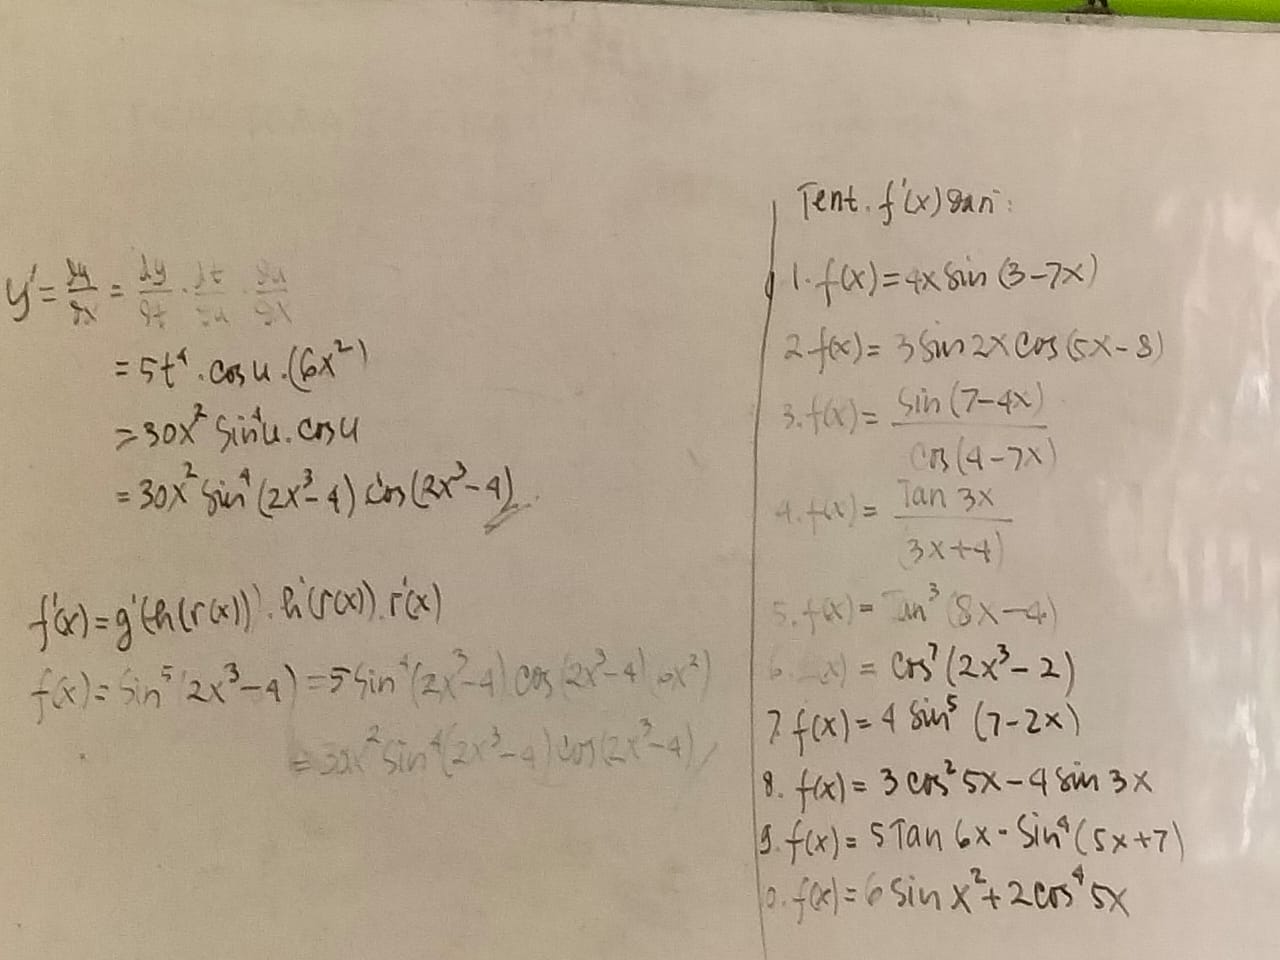 y' = dy/dx = dy/dt · dt/du · du/dx
= 5t⁴ . cos u . (6x²)
= 30x² sin⁴u . cos u
= 30x² sin⁴ (2x³-4) cos (2x³-4)
f'(x) = g'(h(r(x))) . h'(r(x)) . r'(x)
f(x) = sin⁵ (2x³-4) = 5 sin⁴ (2x³-4) cos (2x³-4) (6x²)
= 30x² sin⁴ (2x³-4) cos (2x³-4)
Tent. f'(x) dari :
1. f(x) = 4x sin (3-7x)
2. f(x) = 3 sin 2x cos (5x-8)
3. f(x) = sin (7-4x) / cos (4-7x)
4. f(x) = Tan 3x / (3x+4)
5. f(x) = Tan³ (8x-4)
6. f(x) = cos⁷ (2x³-2)
7. f(x) = 4 sin⁵ (7-2x)
8. f(x) = 3 cos² 5x - 4 sin 3x
9. f(x) = 5 Tan 6x - Sin⁴ (5x+7)
0. f(x) = 6 sin x² + 2 cos⁴ 5x